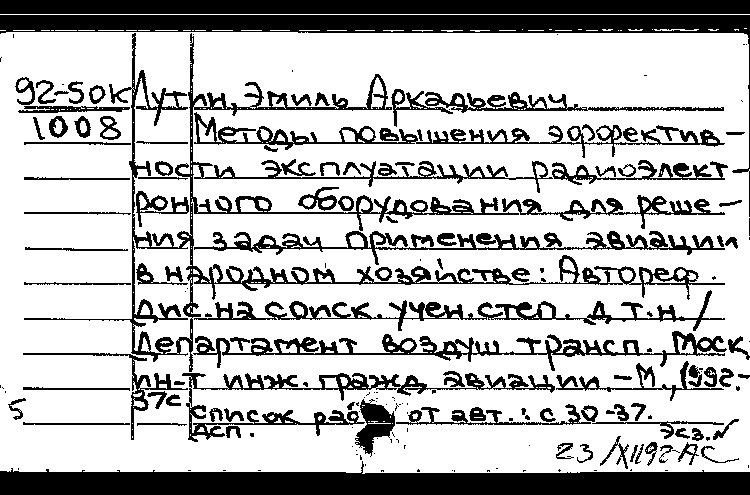 92-50к Лутин, Эмиль Аркадьевич.
1008 Методы повышения эффектив-
ности эксплуатации радиоэлект-
ронного оборудования для реше-
ния задач применения авиации
в народном хозяйстве: Автореф.
Дис. на соиск. учен. степ. д.т.н. /
Департамент воздуш. трансп., Моск.
ин-т инж. гражд. авиации. – М., 1992.-
37с.
5 список раб от авт.: с. 30-37.
дсп. экз. N
23/XII92 АС